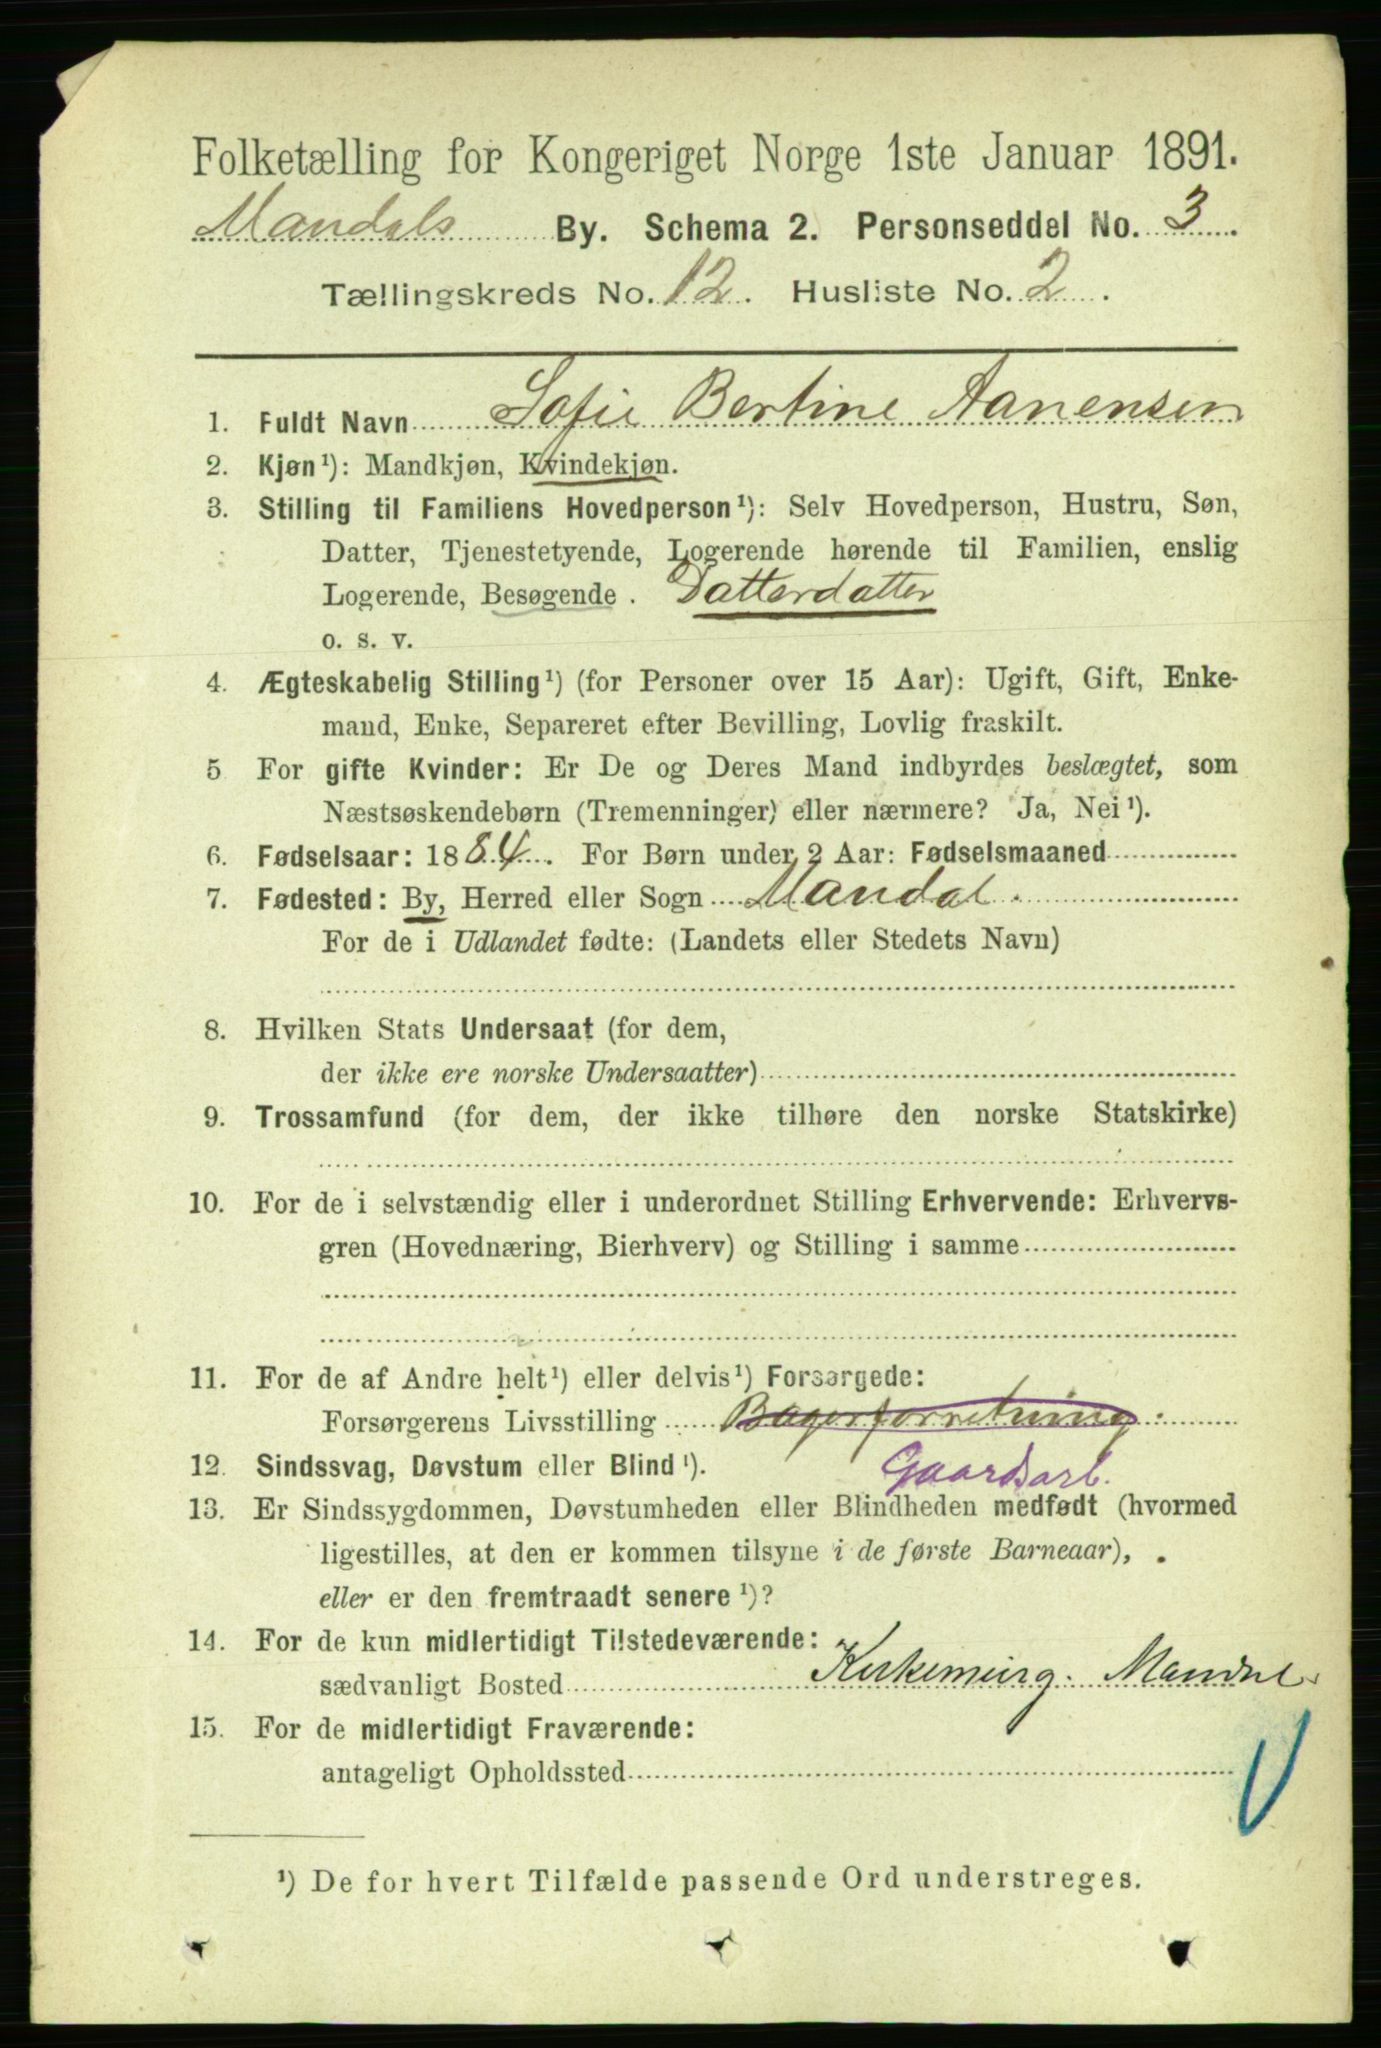 Folketælling for Kongeriget Norge 1ste Januar 1891.
Mandals By. Schema 2. Personseddel No. 3.
Tællingskreds No. 12. Husliste No. 2.
1. Fuldt Navn Sofie Bertine Aanensen
2. Kjøn¹): Mandkjøn, Kvindekjøn.
3. Stilling til Familiens Hovedperson¹): Selv Hovedperson, Hustru, Søn,
Datter, Tjenestetyende, Logerende hørende til Familien, enslig
Logerende, Besøgende. Datterdatter
o. s. v.
4. Ægteskabelig Stilling¹) (for Personer over 15 Aar): Ugift, Gift, Enke-
mand, Enke, Separeret efter Bevilling, Lovlig fraskilt.
5 For gifte Kvinder: Er De og Deres Mand indbyrdes beslægtet, som
Næstsøskendebørn (Tremenninger) eller nærmere? Ja, Nei¹).
6. Fødselsaar: 1884. For Børn under 2 Aar: Fødselsmaaned
7. Fødested: By, Herred eller Sogn Mandal.
For de i Udlandet fødte: (Landets eller Stedets Navn)
8. Hvilken Stats Undersaat (for dem,
der ikke ere norske Undersaatter)
9. Trossamfund (for dem, der ikke tilhøre den norske Statskirke)
10. For de i selvstændig eller i underordnet Stilling Erhvervende: Erhvervs-
gren (Hovednæring, Bierhverv) og Stilling i samme
11. For de af Andre helt¹) eller delvis¹) Forsørgede:
Forsørgerens Livsstilling Bagerforretning.
12. Sindssvag, Døvstum eller Blind¹). Gaardsarb.
13. Er Sindssygdommen, Døvstumheden eller Blindheden medfødt (hvormed
ligestilles, at den er kommen tilsyne i de første Barneaar),
eller er den fremtraadt senere¹)?
14. For de kun midlertidigt Tilstedeværende:
sædvanligt Bosted Mandal
15. For de midlertidigt Fraværende:
antageligt Opholdssted
¹) De for hvert Tilfælde passende Ord understreges.